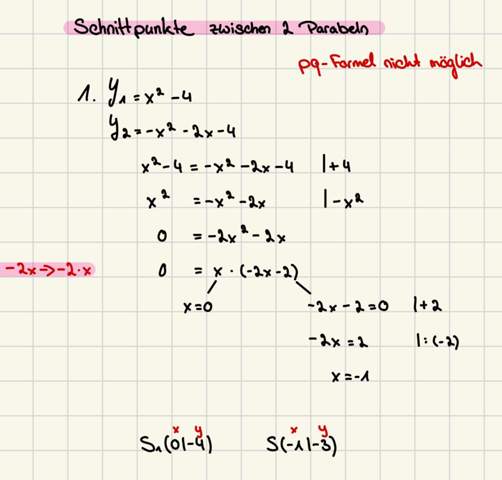 Schnittpunkte zwischen 2 Parabeln
pq-Formel nicht möglich
1. y₁ = x² - 4
y₂ = -x² - 2x - 4
x² - 4 = -x² - 2x - 4 | + 4
x² = -x² - 2x | - x²
0 = -2x² - 2x
-2x → -2 · x 0 = x · (-2x - 2)
x = 0 -2x - 2 = 0 | + 2
-2x = 2 | : (-2)
x = -1
x y x y
S₁ (0 | -4) S (-1 | -3)